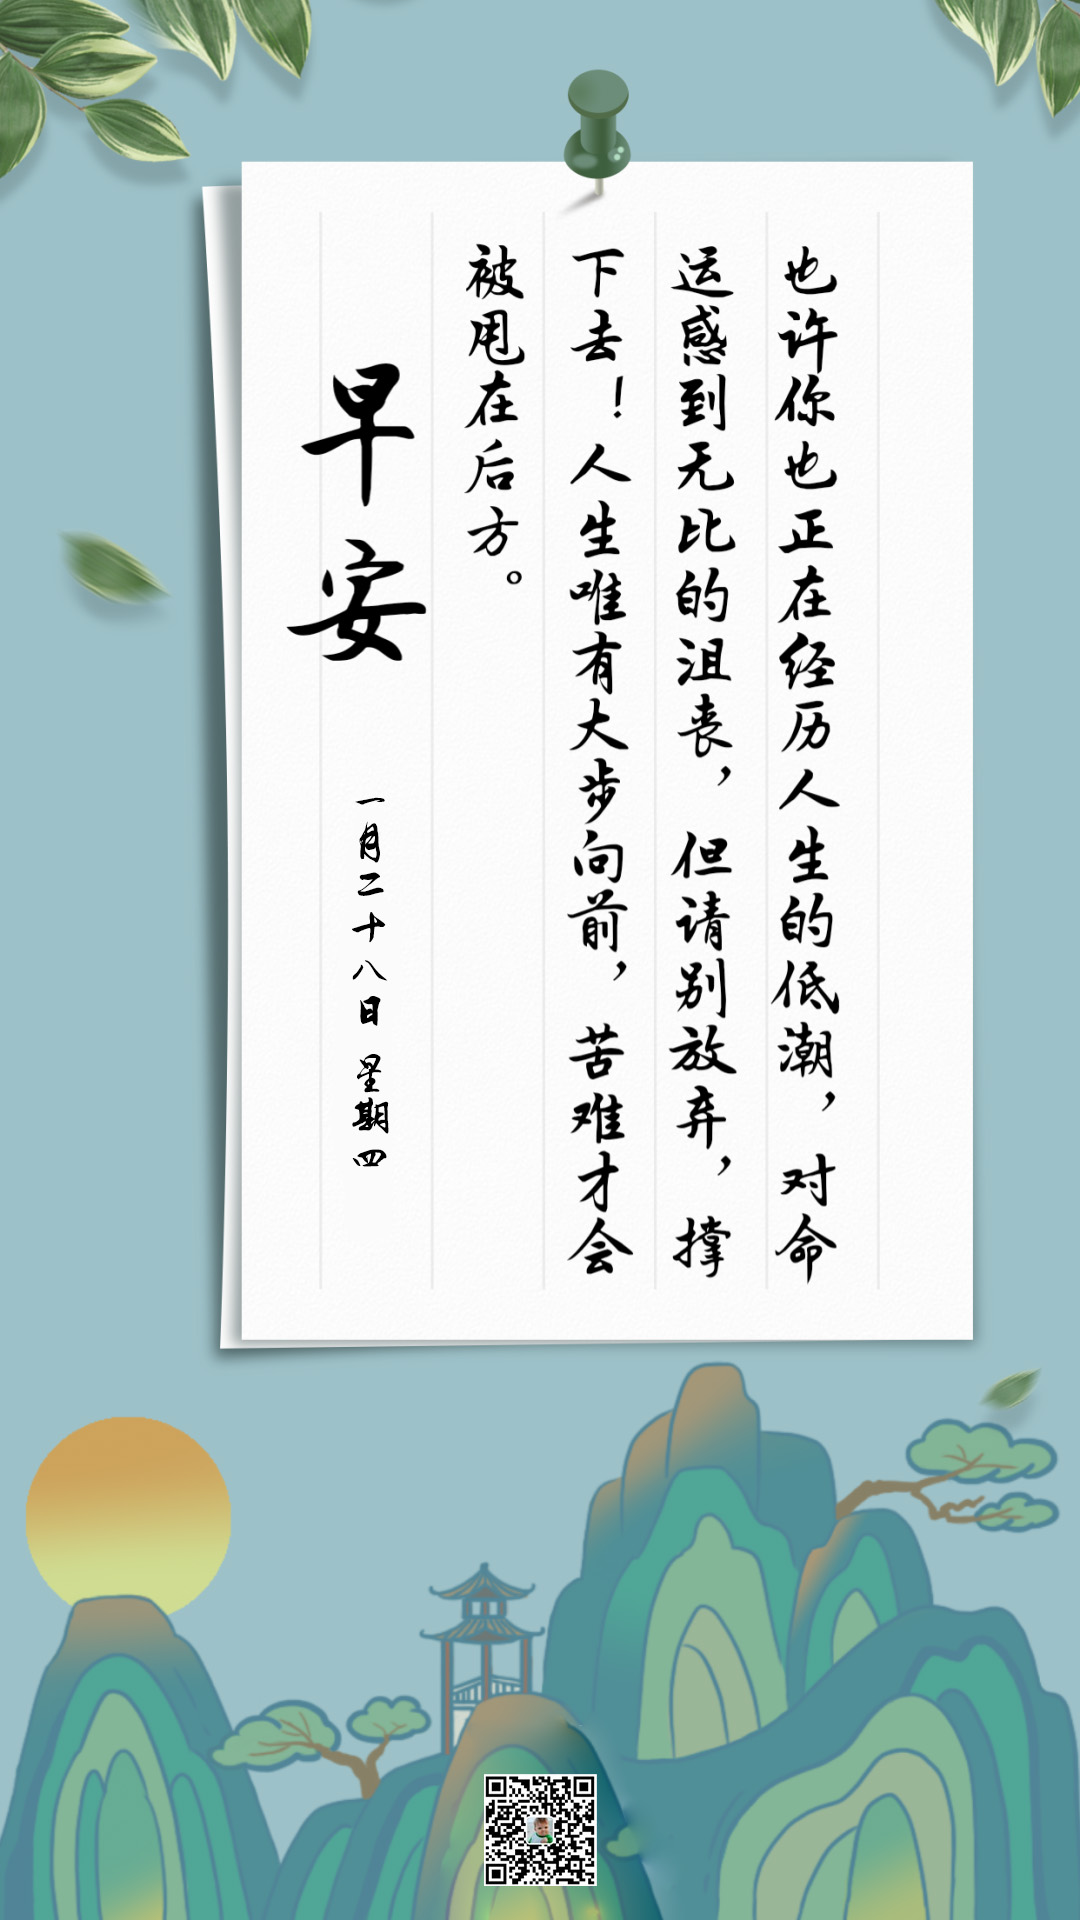 也许你也正在经历人生的低潮，对命
运感到无比的沮丧，但请别放弃，撑
下去！人生唯有大步向前，苦难才会
被甩在后方。
早安
一月二十八日 星期四